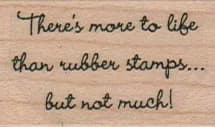 There's more to life
than rubber stamps...
but not much!